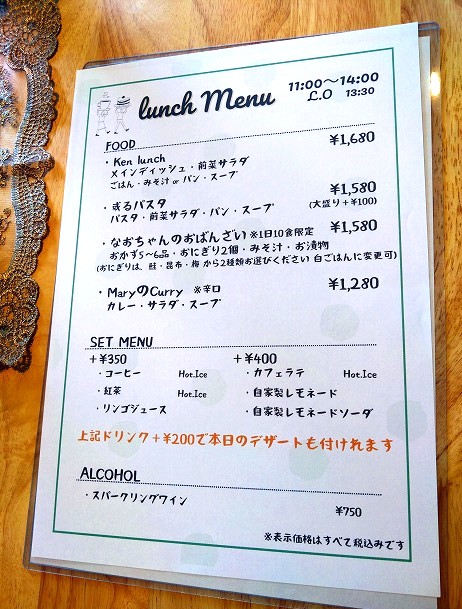 lunch Menu
11:00〜14:00
L.O 13:30
FOOD
・Ken lunch ¥1,680
メインディッシュ・前菜サラダ
ごはん・みそ汁 or パン・スープ
・或るパスタ ¥1,580
パスタ・前菜サラダ・パン・スープ (大盛り+¥100)
・なおちゃんのおばんざい ※1日10食限定 ¥1,580
おかず5〜6品・おにぎり2個・みそ汁・お漬物
(おにぎりは、鮭・昆布・梅 から2種類お選びください 白ごはんに変更可)
・MaryのCurry ※辛口 ¥1,280
カレー・サラダ・スープ
SET MENU
+¥350
・コーヒー Hot.Ice
・紅茶 Hot.Ice
・リンゴジュース
+¥400
・カフェラテ Hot.Ice
・自家製レモネード
・自家製レモネードソーダ
上記ドリンク+¥200で本日のデザートも付けれます
ALCOHOL
・スパークリングワイン ¥750
※表示価格はすべて税込みです